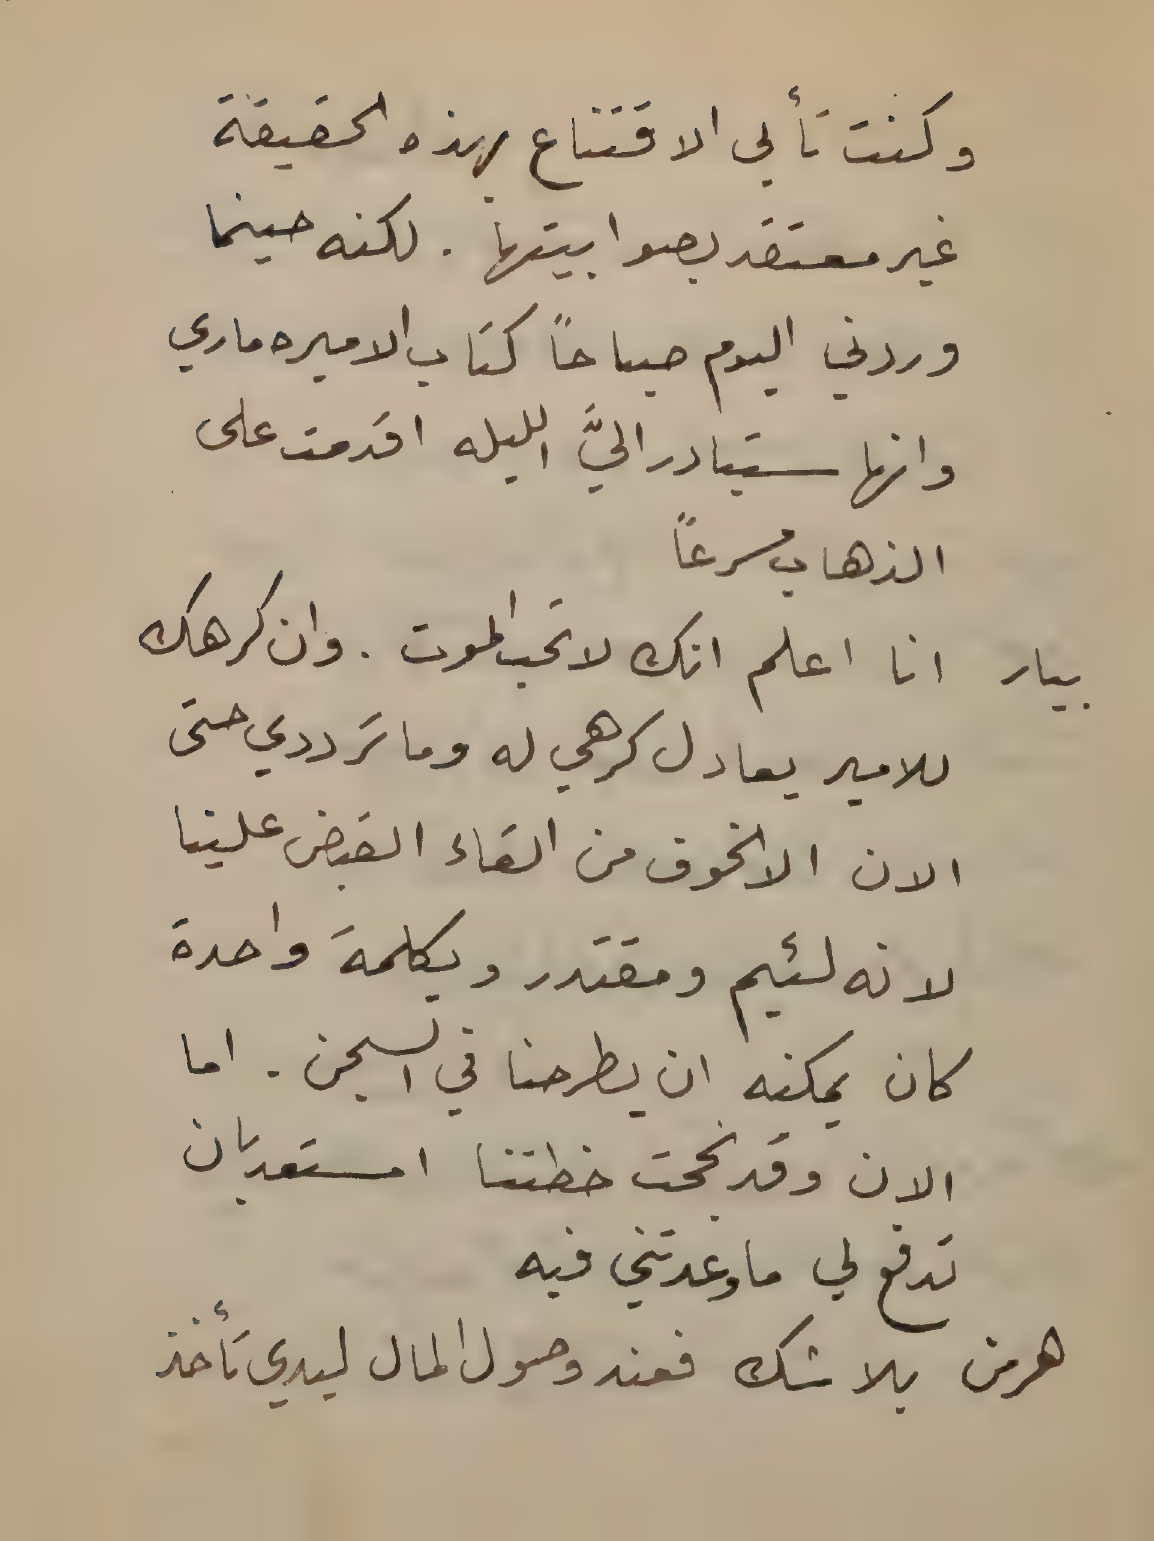 وكنت تأبى الاقتناع بهذه الحقيقة
غير معتقد بصوابيتها . لكنه حينما
وردني اليوم صباحاً كتاب الاميره ماري
وانها ستبادر اليَّ الليله اقدمت على
الذهاب مسرعاً
بيار انا اعلم انك لا تحب الموت . وان كرهك
للامير يعادل كرهي له وما ترددي حتى
الان الا لخوف من القاء القبض علينا
لانه لئيم ومقتدر وبكلمة واحدة
كان يمكنه ان يطرحنا في السجن . اما
الان وقد نجحت خطتنا امستعد بان
تدفع لي ما وعدتني فيه
هرمن بلا شك فعند وصول المال ليدي تأخذ